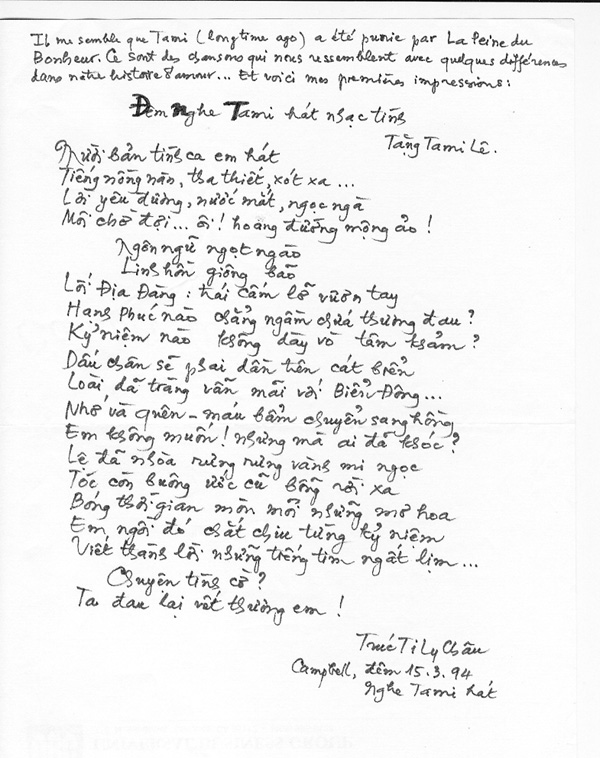 Il me semble que Tami (longtime ago) a été punie par La Peine du
Bonheur. Ce sont des chansons qui nous ressemblent avec quelques différences
dans nôtre histoire d'amour... Et voici mes premières impressions:
Đêm nghe Tami hát nhạc tình
Tặng Tami Lê.
Mười bản tình ca em hát
Tiếng nồng nàn, tha thiết, xót xa...
Lời yêu đương, nước mắt, ngọc ngà
Môi chờ đợi... ôi! hoang đường mộng ảo!
Ngôn ngữ ngọt ngào
Linh hồn giông bão
Lối Địa Đàng: trái cấm lỡ vươn tay
Hạnh Phúc nào chẳng ngầm chứa thương đau?
Kỷ niệm nào không dày vò tâm khảm?
Dấu chân sẽ phai dần trên cát biển
Loài dã tràng vẫn mãi với Biển Đông...
Nhớ và quên - máu bầm chuyển sang hồng
Em không muốn! nhưng mà ai đã khóc?
Lệ đã nhòa rưng rưng vành mi ngọc
Tóc còn buông ước cũ bỗng rời xa
Bóng thời gian mòn mỏi những mơ hoa
Em ngồi đó chắt chiu từng kỷ niệm
Viết thành lời những trống tim ngất lịm...
Chuyện tình cờ?
Ta đau lại vết thương em!
Trúc Ti Ly Châu
Campbell, đêm 15.3.94
Nghe Tami hát